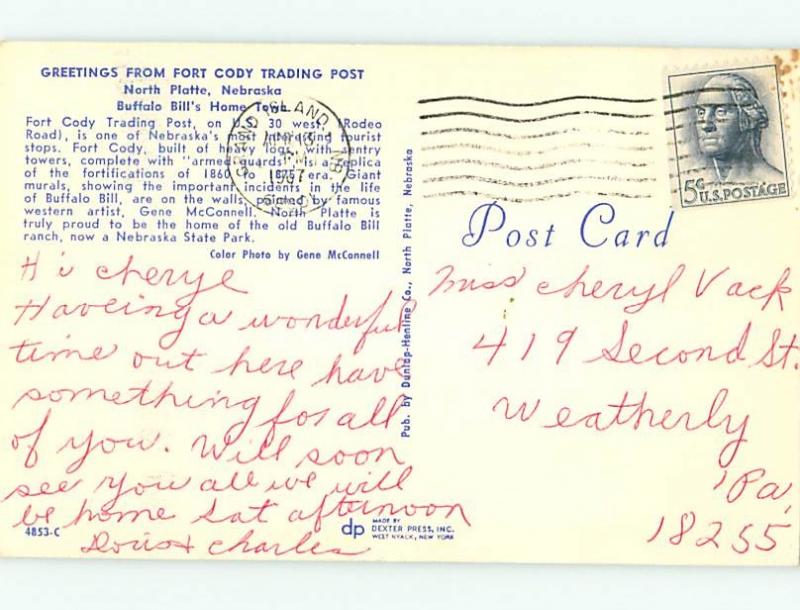 GREETINGS FROM FORT CODY TRADING POST
North Platte, Nebraska
Buffalo Bill's Home Town
Fort Cody Trading Post, on U.S. 30 west, (Rodeo
Road), is one of Nebraska's most interesting tourist
stops. Fort Cody, built of heavy logs, with sentry
towers, complete with "armed guards" is a replica
of the fortifications of 1860 to 1875 era. Giant
murals, showing the important incidents in the life
of Buffalo Bill, are on the walls, painted by famous
western artist, Gene McConnell. North Platte is
truly proud to be the home of the old Buffalo Bill
ranch, now a Nebraska State Park.
Color Photo by Gene McConnell
Hi cherye
Haveing a wonderful
time out here have
something for all
of you. Will soon
see you all we will
be home Sat afternoon
Doris & charles
4853-C
dp
MADE BY
DEXTER PRESS, INC.
WEST NYACK, NEW YORK
Pub. by Dunlap-Henline Co., North Platte, Nebraska
GRAND ISLAND, NEB
1967
5¢ U.S. POSTAGE
Post Card
Miss Cheryl Vack
419 Second St.
Weatherly
Pa,
18255